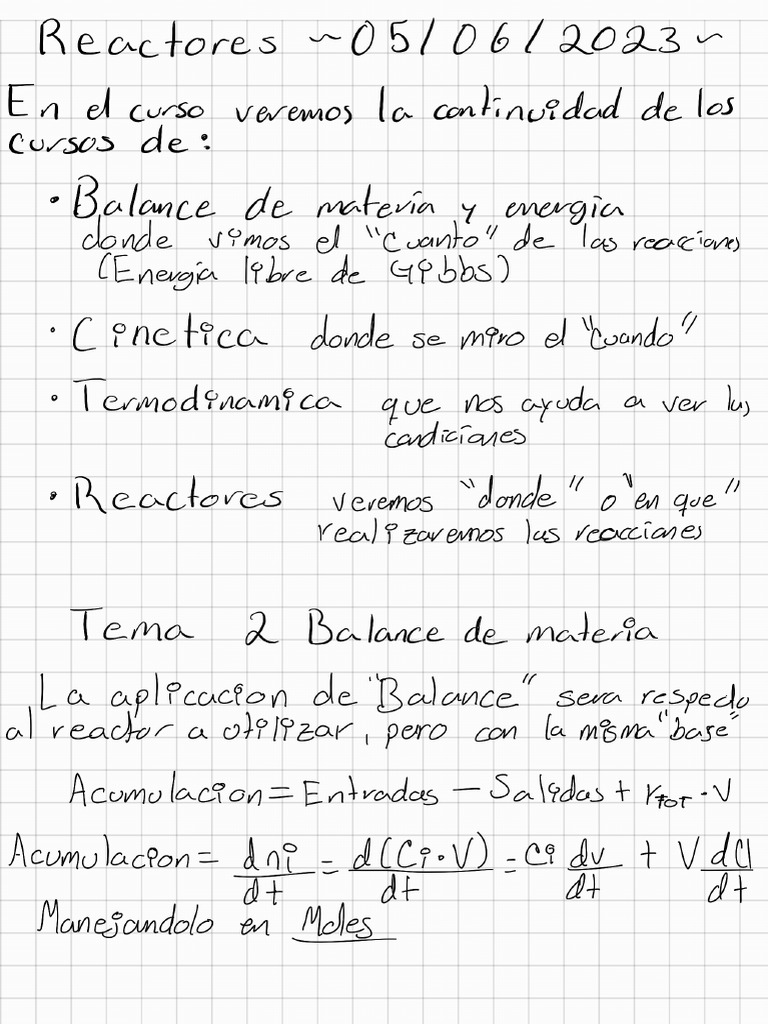 Reactores ~05/06/2023~
En el curso veremos la continuidad de los
cursos de:
• Balance de materia y energia
donde vimos el "Cuanto" de las reacciones
(Energia libre de Gibbs)
• Cinetica donde se miro el "cuando"
• Termodinamica que nos ayuda a ver las
condiciones
• Reactores veremos "donde" o "en que"
realizaremos las reacciones
Tema 2 Balance de materia
La aplicacion de "Balance" sera respecto
al reactor a utilizar, pero con la misma "base"
Acumulacion = Entradas - Salidas + rtot · V
Acumulacion = dni/dt = d(Ci·V)/dt = Ci dv/dt + V dCi/dt
Manejandolo en Moles